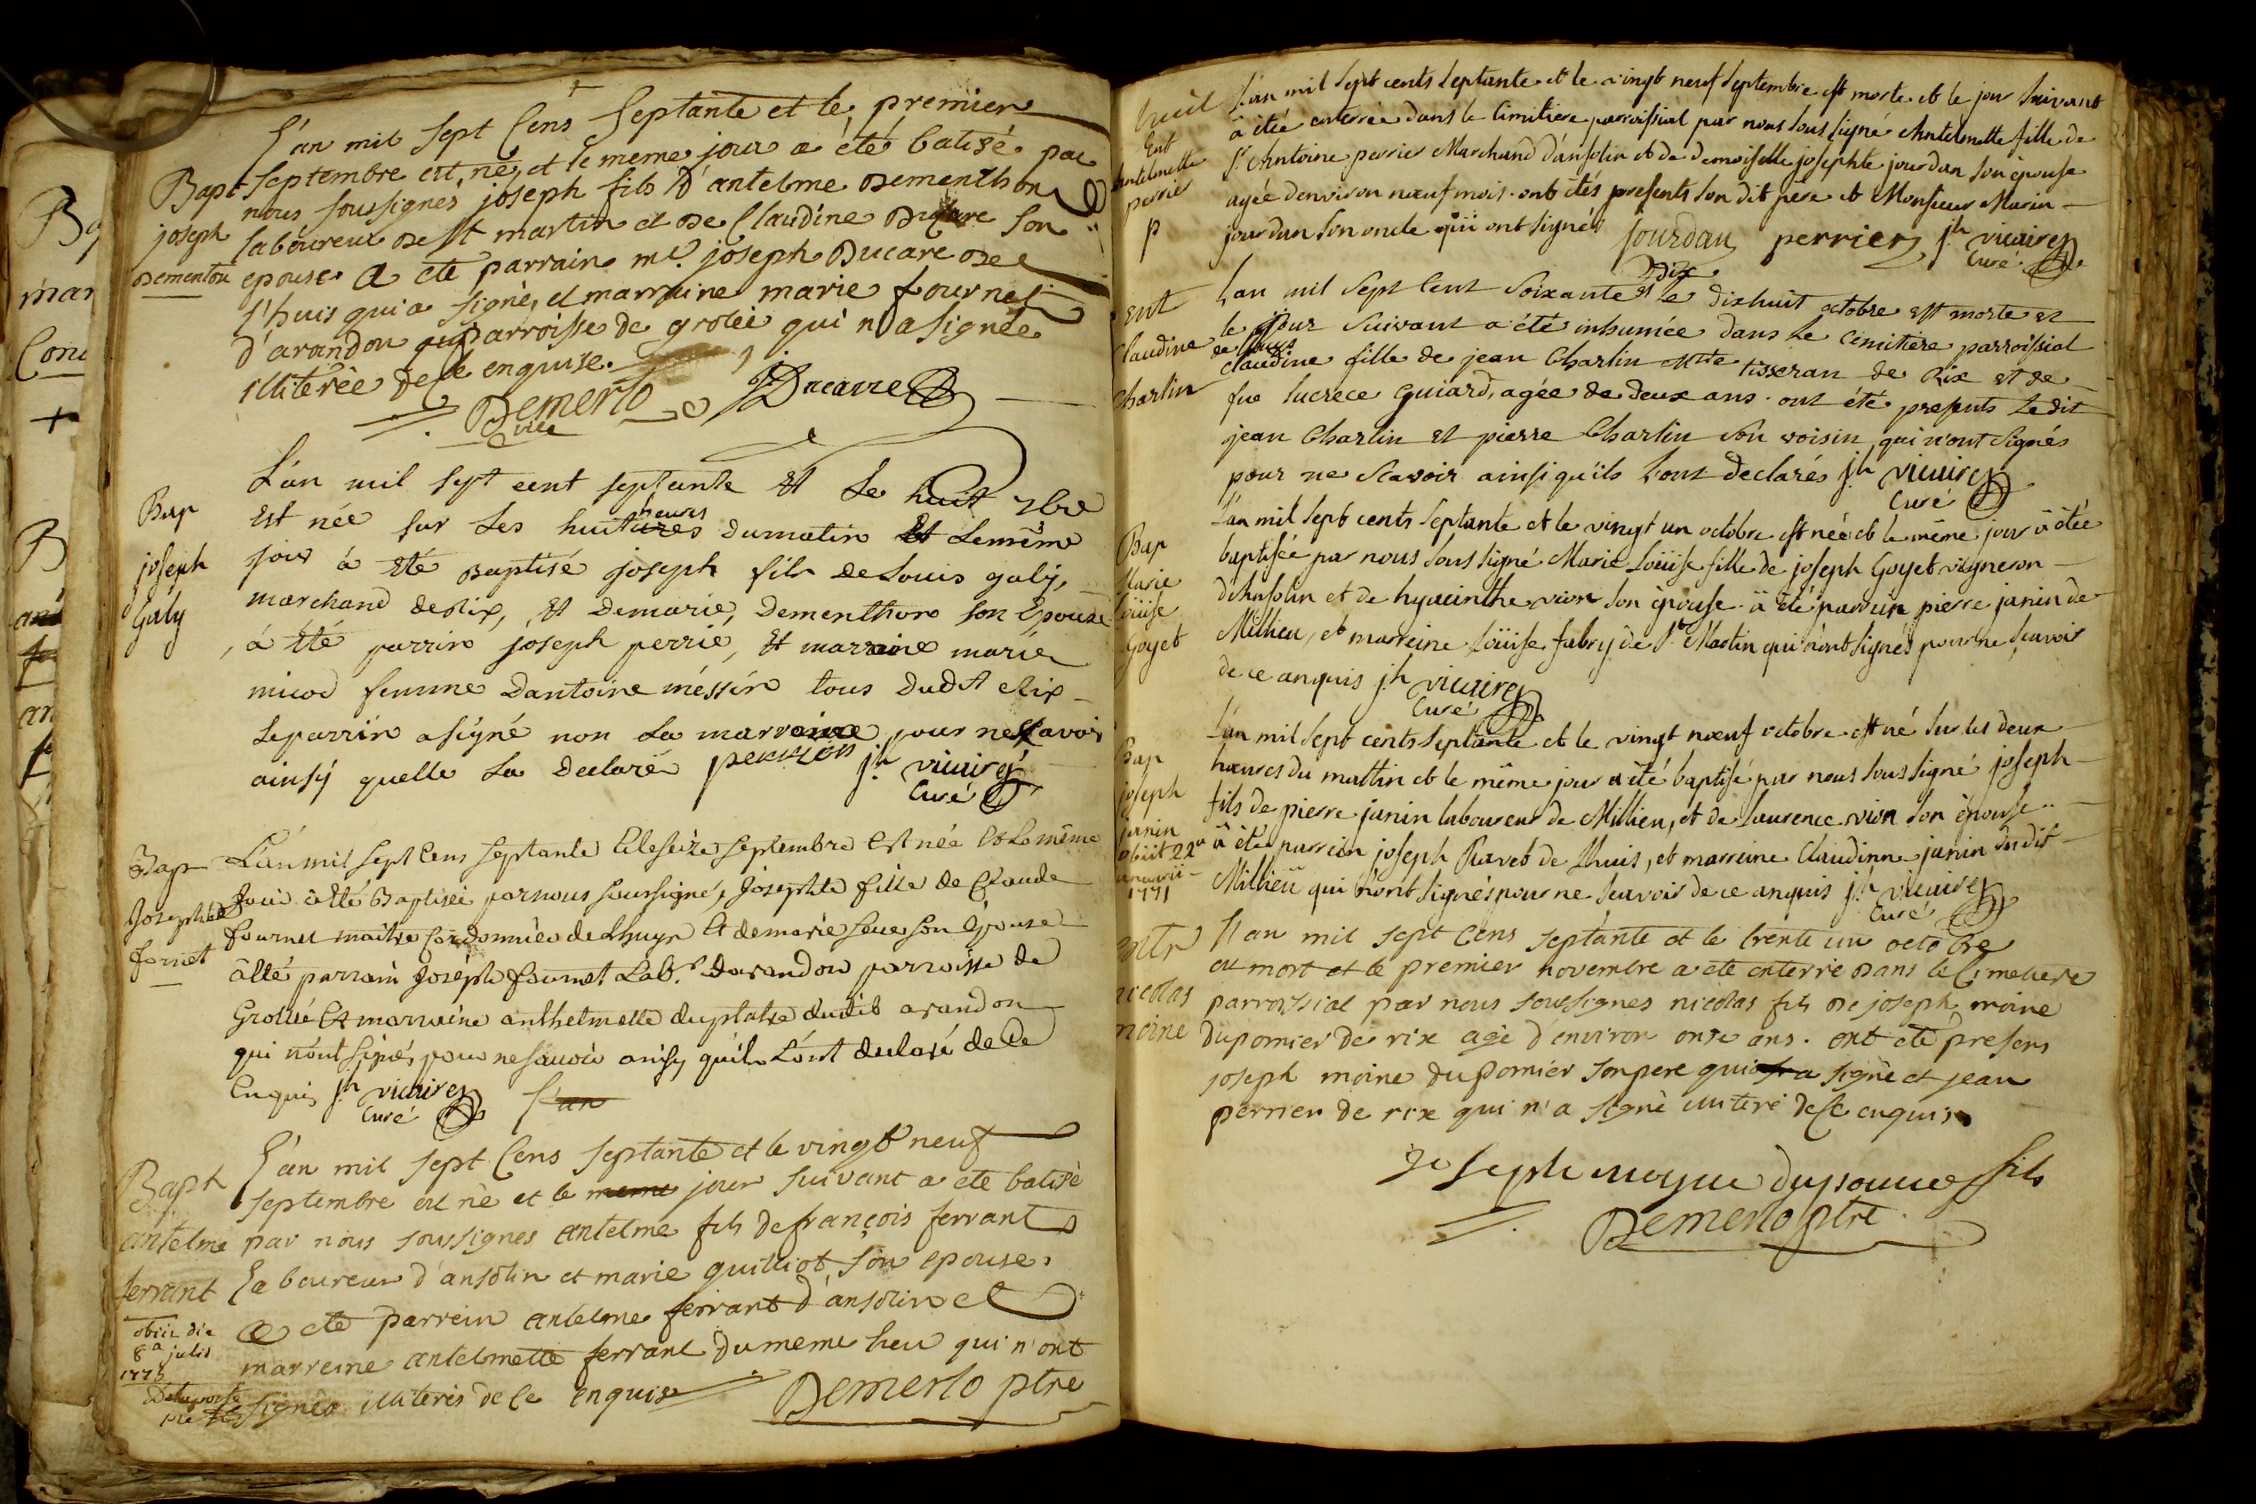 L'an mil sept Cens septante et le premier
Bapt septembre est né, et le meme jour a été batisé par
nous soussignés joseph fils d'antelme dementhon
joseph laboureur de st martin et de Claudine Ducare son
dementon epouse. a eté parrain mr. joseph Ducare de
l'huis qui a signé, et marraine marie fournet
d'arandon parroisse de grolée qui n'a signée
illitérée de ce enquise.
Demerlo vic J Ducarre
L'an mil sept cent septante Et Le huit 7bre
Bap Est née sur Les huit heures du matin Et Lemême
joseph jour à Eté Baptisé joseph fils de Louis galy,
Galy marchand de Rix, Et de marie, Dementhon son Epouse
à Eté parrin joseph perrié, Et marraine marie
micod femme Dantoine méssin tous dudt Rix
Leparrin a signé non La marraine pour ne scavoir
ainsy quelle La Declaré perrier jh vicaire
Curé
Bap L'an mil sept Cens septante Et le seize septembre Est née Et Le même
Josephte jour à été Baptisée par nous soussigné, Josephte fille de Claude
fornet fournet maitre Cordonnier de Lhuys Et de marie seve son épouse
à été parrain Joseph fournet Labr. darandon parroisse de
Grolée Et marraine anthelmette duplatre dudit arandon
qui n'ont signé, pour ne savoir ainsy quil L'ont declaré de Ce
Enquis jh vicaire L'an
Curé
L'an mil sept Cens septante et le vingt neuf
Bapt septembre est né et le meme jour suivant a eté batisé
antelme par nous soussignes antelme fils de françois ferrant
ferrant laboureur d'ansolin et marie guilliot son epouse.
obiit die a eté parrein antelme ferrant d'ansolin et
8a julii marreine antelmette ferrant du meme lieu qui n'ont
1773
Delaporte signés illiterés de ce enquis Demerlo ptre
L'an mil sept cents septante et le vingt neuf septembre est morte et le jour suivant
Ent à étée enterrée dans le cimitiere parroissial par nous sous signé Antelmette fille de
antelmette Sr Antoine perrier Marchand d'ansolin et de demoiselle josephte jourdan son épouse
perrier agée denviron nœuf mois. ont étés presents son dit pere et Monsieur Marin
p jourdan son oncle qui ont signés jourdan perrier jh vicaire
Curé
dix
Ent L'an mil sept Cent soixante et le dixhuit octobre est morte et
Claudine le jour suivant a été inhumée dans Le Cimitiere parroissial
de nous
Charlin Claudine fille de jean Charlin Mtre tisseran de Rix et de
fue lucrece Guiard, agée de deux ans. ont été presents Ledit
jean Charlin Et pierre Charlin son voisin, qui n'ont signés
pour ne Scavoir ainsi qu'ils Lont declarés jh vicaire
Curé
L'an mil sept cents septante et le vingt un octobre est née et le même jour à étée
Bap baptisée par nous sous signé Marie Loüise fille de joseph Goyet vigneron
Marie d'Ansolin et de hyacinthe vion son épouse à été parrein pierre janin de
Loüise Millieu, et marreine Loüise fabry de St Martin qui n'ont signés pour ne scavoir
Goyet de ce anquis jh vicaire
Curé
L'an mil sept cents septante et le vingt nœuf octobre est né sur les deux
Bap hœures du mattin et le même jour a été baptisé par nous sous signé joseph
joseph fils de pierre janin laboureur de Millieu, et de Laurence vion son épouse
janin à été parrein joseph Ravet de Lhuis, et marreine Claudinne janin dudit
obiit 22a Millieu qui n'ont signés pour ne scavoir de ce anquis jh vicaire
1771 Curé
L'an mil sept Cens septante et le trente un octobre
entr est mort et le premier novembre a eté enterré dans le Cimetiere
nicolas parroissial par nous soussignés nicolas fils de joseph moine
moine dupomier de rix agé d'environ onze ans. ont eté presens
joseph moine dupomier son pere qui a signé et jean
perrier de rix qui n'a signé illiteré de ce enquis
Joseph moyne dupomier fils
Demerlo ptre